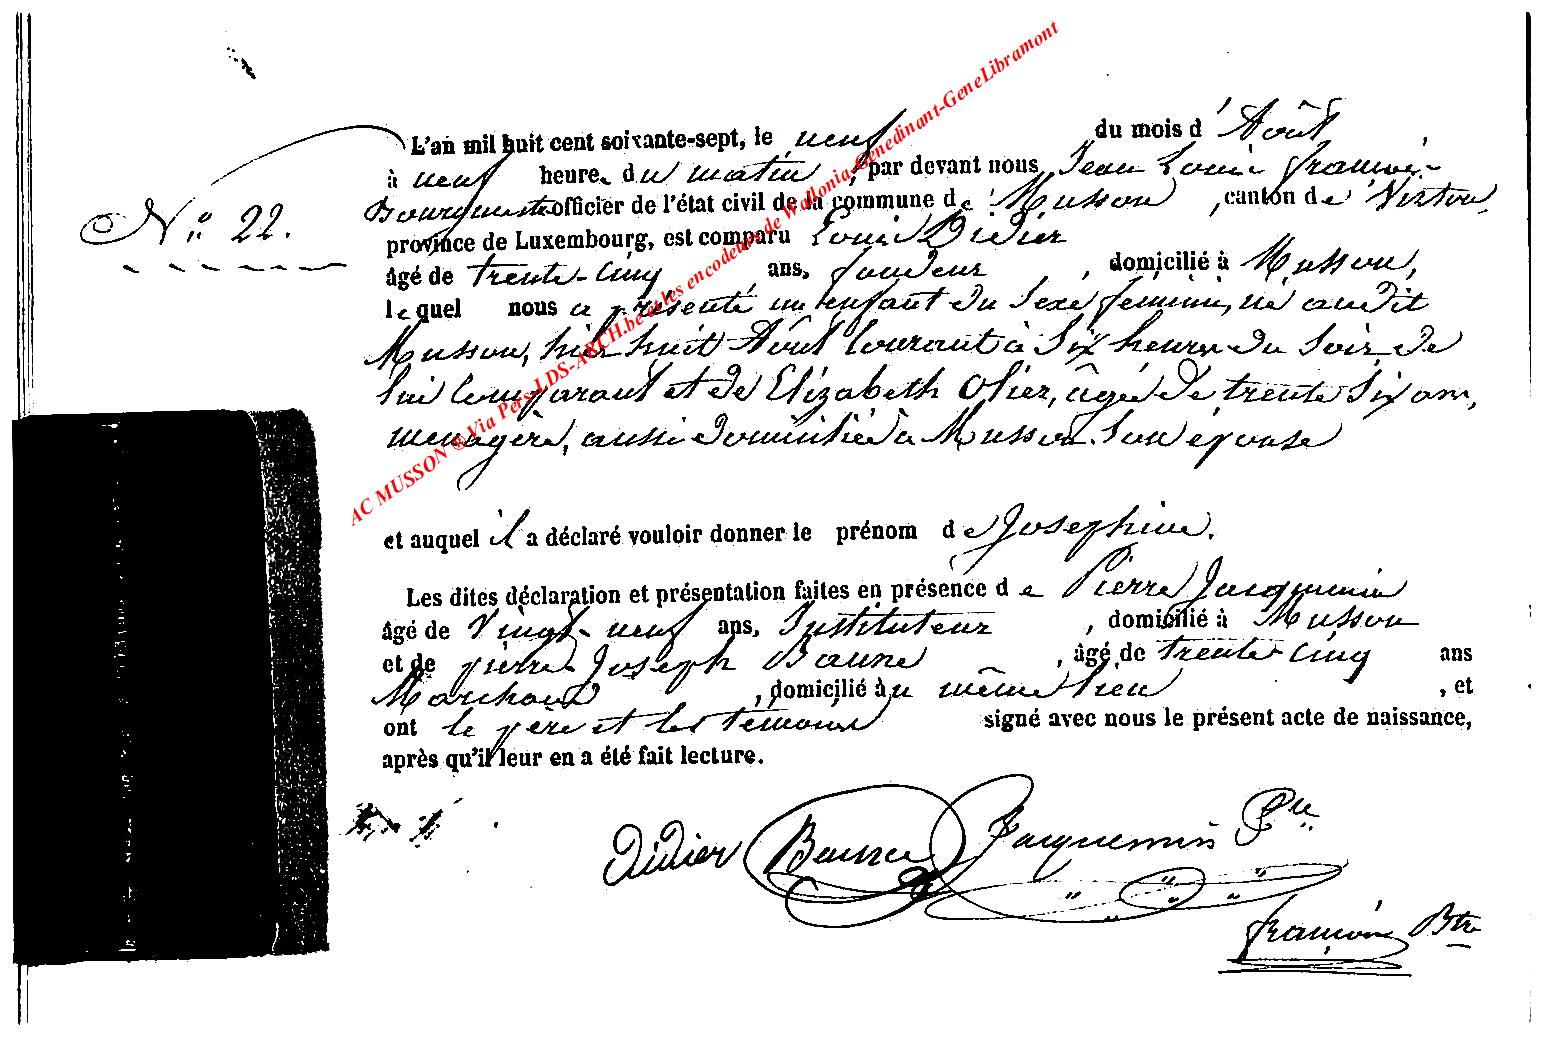 L'an mil huit cent soixante-sept, le neuf du mois d'Août
à neuf heures du matin, par devant nous Jean Louis François
N° 22.
Bourgmestre officier de l'état civil de la commune de Musson, canton de Virton,
province de Luxembourg, est comparu Louis Didier
âgé de trente-cinq ans, fondeur, domicilié à Musson,
lequel nous a présenté un enfant du sexe féminin, né audit
Musson, hier huit Août courant à six heures du soir, de
lui comparant et de Elizabeth Olier, âgée de trente six ans,
menagère, aussi domiciliée à Musson son épouse
et auquel il a déclaré vouloir donner le prénom de Josephine.
Les dites déclaration et présentation faites en présence de Pierre Jacquemin
âgé de vingt-neuf ans, Instituteur, domicilié à Musson
et de pierre Joseph Baune, âgé de trente-cinq ans
Marchand, domicilié au même lieu, et
ont le père et les témoins signé avec nous le présent acte de naissance,
après qu'il leur en a été fait lecture.
Didier Baune Jacquemin Pre
François Btre
AC MUSSON ® Via Pers-LDS-ARCH.be et les encodeurs de Wallonia-Genedinant-GeneLibramont